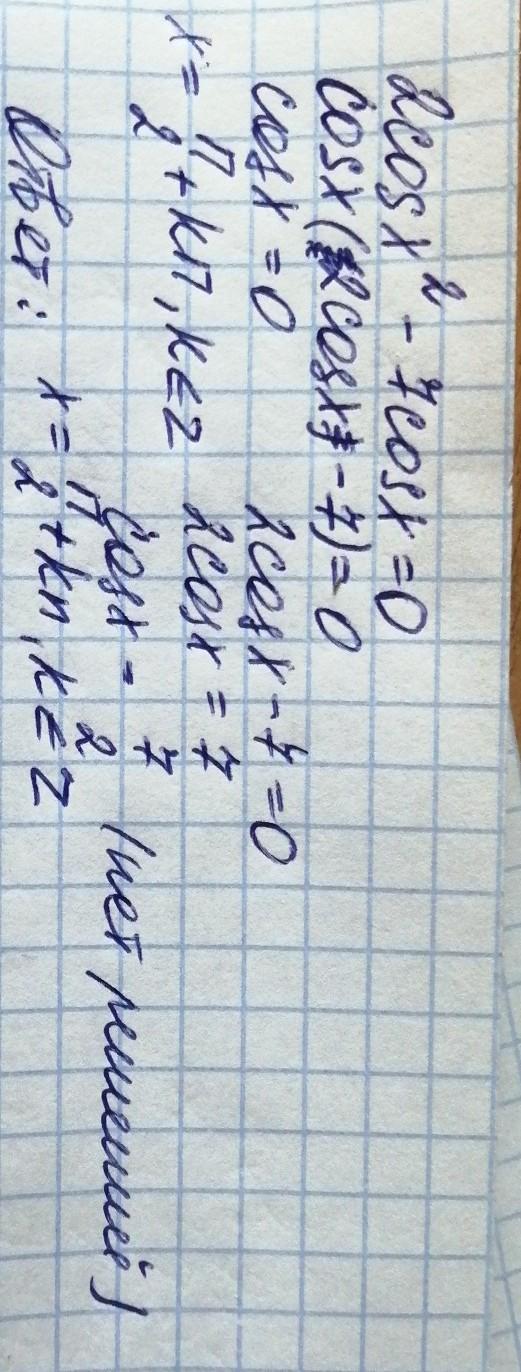 2cosx² - 7cosx = 0
cosx (2cosx - 7) = 0
cosx = 0 2cosx - 7 = 0
x = π/2 + kπ, k ∈ Z 2cosx = 7
cosx = 7/2 (нет решений)
Ответ: x = π/2 + kπ, k ∈ Z